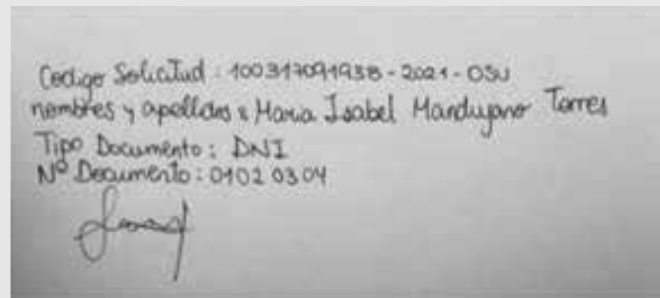 Codigo Solicitud : 100317091938-2021-OSU
nombres y apellidos : Maria Isabel Mandujano Torres
Tipo Documento : DNI
Nº Documento : 0102 0304